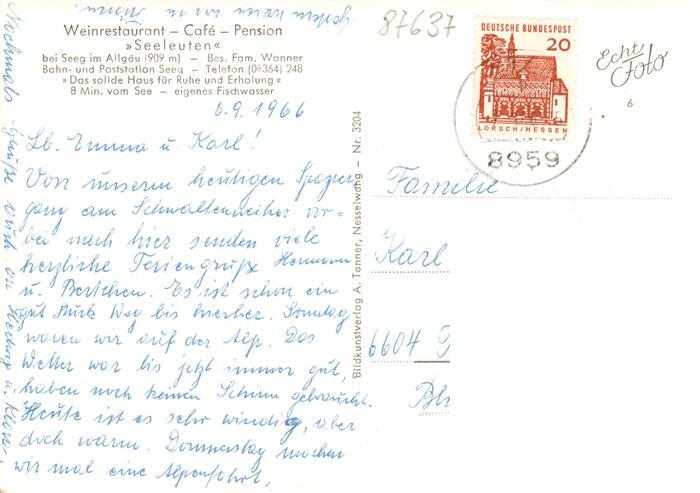 Weinrestaurant – Café – Pension
»Seeleuten«
bei Seeg im Allgäu (909 m) – Bes. Fam. Wanner
Bahn- und Poststation Seeg – Telefon (08364) 248
»Das solide Haus für Ruhe und Erholung«
8 Min. vom See – eigenes Fischwasser
6.9.1966
Lb. Emma u. Karl!
Von unserem heutigen Spazier
gang am Schwaltenweiher vor=
bei nach hier senden viele
herzliche Feriengrüße Hermann
u. Bertchen. Es ist schon ein
gut Stück Weg bis hierher. Sonntag
waren wir auf der Alp. Das
Wetter war bis jetzt immer gut,
haben noch keinen Schirm gebraucht.
Heute ist es sehr windig, aber
doch warm. Donnerstag machen
wir mal eine Alpenfahrt,
gestern waren wir in Füssen.
Nochmals Grüße auch an Hedwig u. Klaus
Bildkunstverlag A. Tanner, Nesselwang – Nr. 3204
87637
DEUTSCHE BUNDESPOST
20
LORSCH/HESSEN
8959
Echt
Foto
6
Familie
Karl
6604